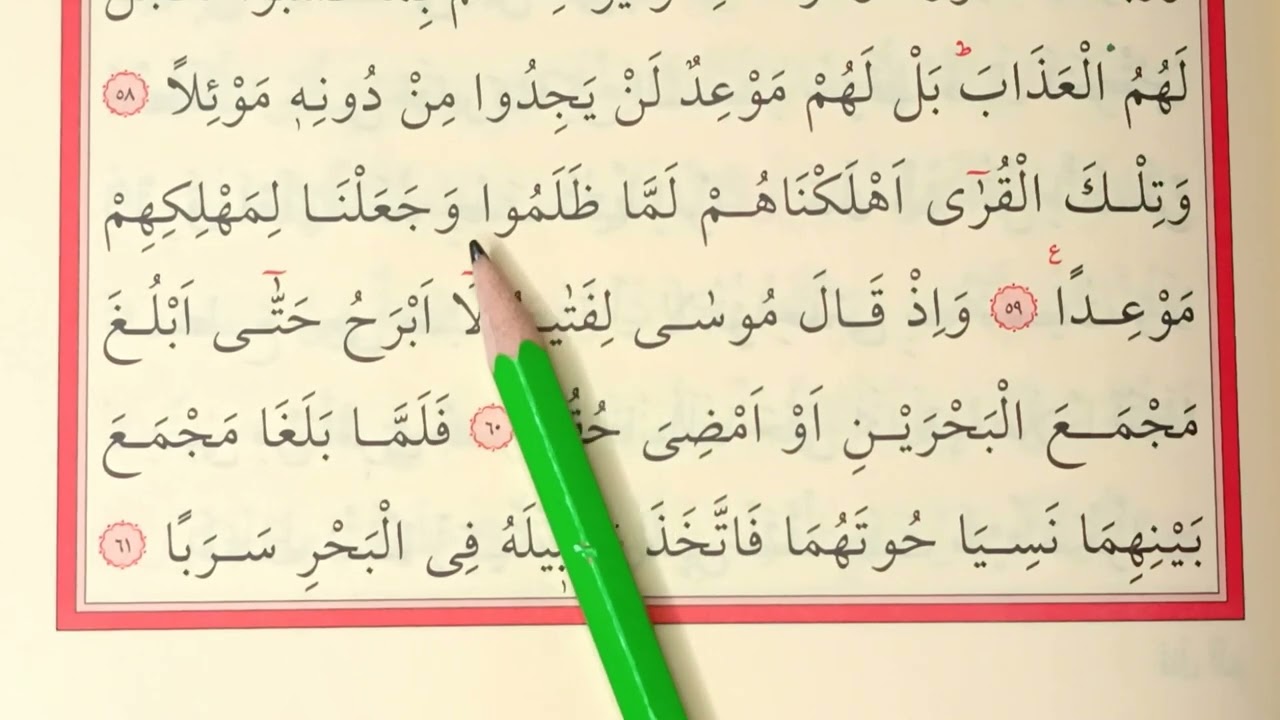 لَهُمُ الْعَذَابَ ط بَلْ لَهُمْ مَوْعِدٌ لَنْ يَجِدُوا مِنْ دُونِه۪ مَوْئِلًا ٥٨
وَتِلْكَ الْقُرٰٓى اَهْلَكْنَاهُمْ لَمَّا ظَلَمُوا وَجَعَلْنَا لِمَهْلِكِهِمْ
مَوْعِدًا ع ٥٩ وَاِذْ قَالَ مُوسٰى لَٓا اَبْرَحُ حَتّٰٓى اَبْلُغَ
مَجْمَعَ الْبَحْرَيْنِ اَوْ اَمْضِىَ ٦٠ فَلَمَّا بَلَغَا مَجْمَعَ
بَيْنِهِمَا نَسِيَا حُوتَهُمَا فَاتَّخَذَ فِى الْبَحْرِ سَرَبًا ٦١